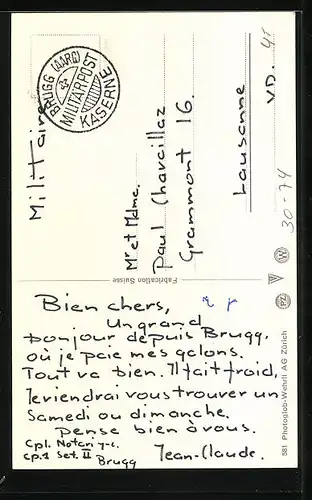 Militaire
BRUGG (AARG)
MILITÄRPOST
KASERNE
Mr et Mdme.
Paul Charcillaz
Grammont 16.
Lausanne
VD.
30-74
Fabrication Suisse
581 Photoglob-Wehrli AG Zürich
PZ
W
Bien chers,
Un grand
bonjour depuis Brugg,
où je paie mes galons.
Tout va bien. Il fait froid,
Je viendrai vous trouver un
Samedi ou dimanche.
Pense bien à vous.
Cpl. Notari J-C.
Cp.1 Set. II
Brugg
Jean-Claude.